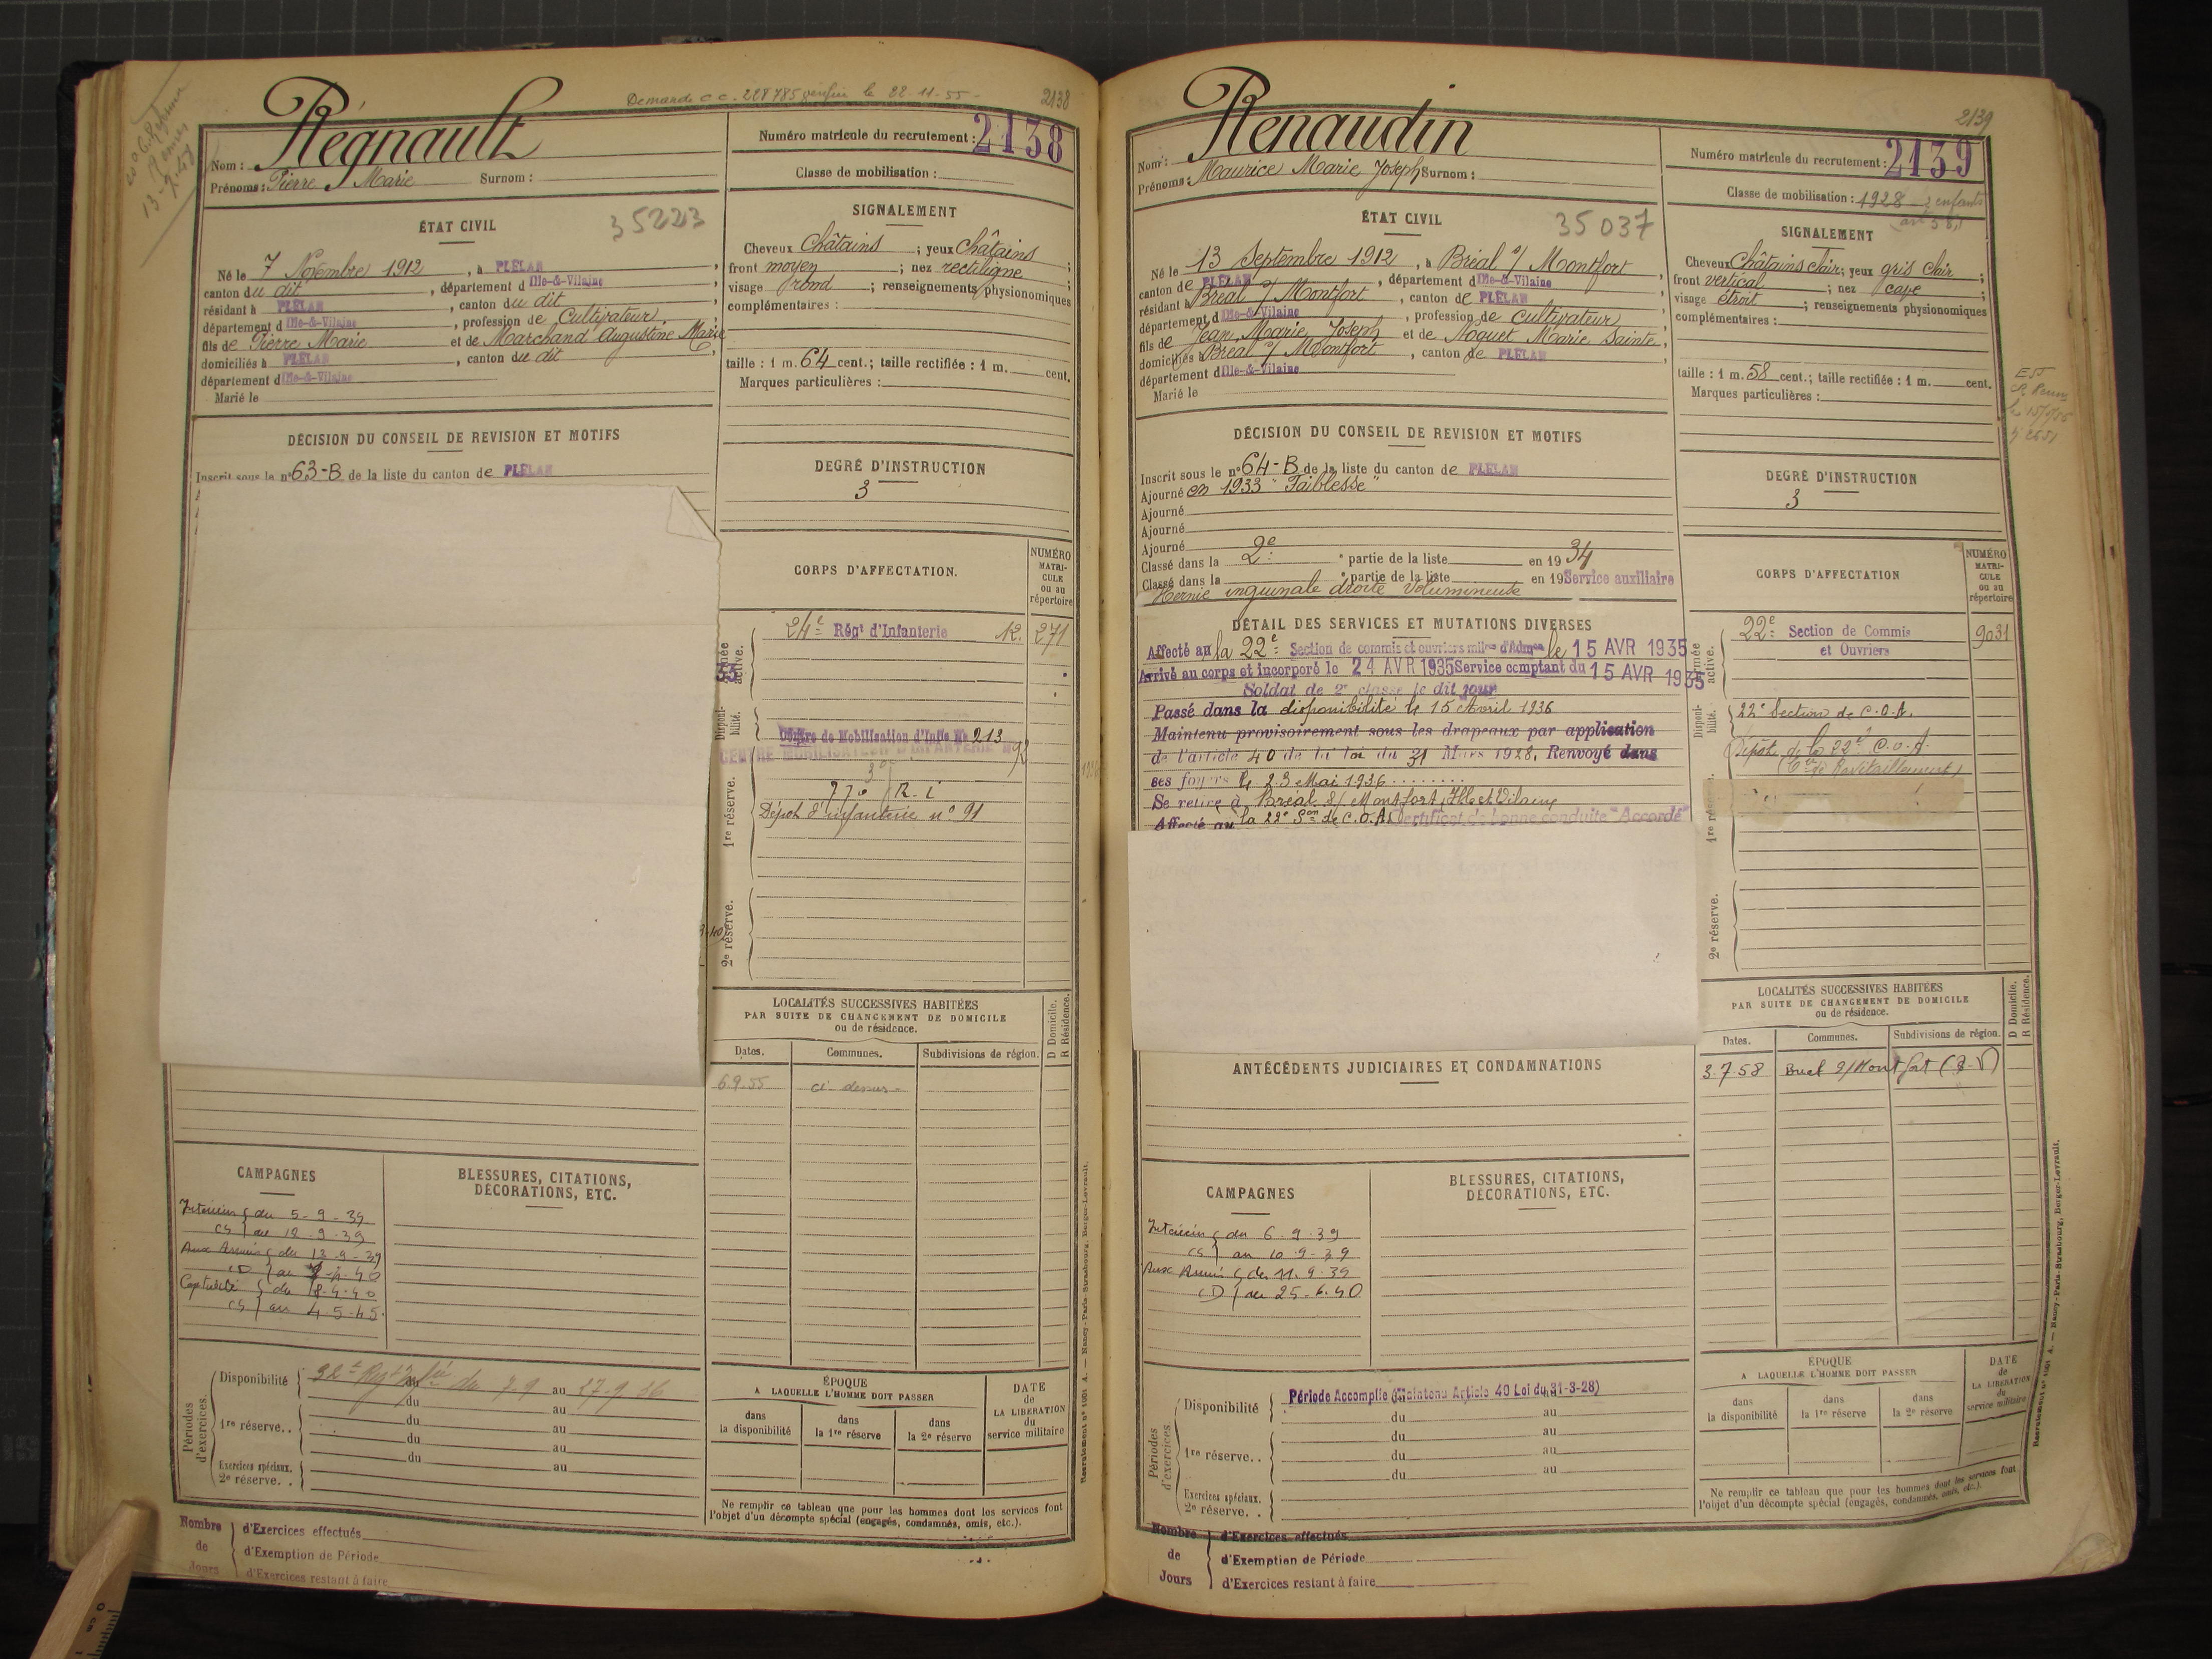 Demande c.c. 228785 verifiée le 22-11-55-
2138
Régnault
Nom :
Prénoms : Pierre Marie Surnom :
Numéro matricule du recrutement : 2138
Classe de mobilisation :
ÉTAT CIVIL
35223
Né le 7 Novembre 1912, à PLÉLAN,
canton du dit, département d Ille-&-Vilaine
résidant à PLÉLAN, canton du dit,
département d Ille-&-Vilaine, profession de Cultivateur,
fils de Pierre Marie et de Marchand Augustine Marie
domiciliés à PLÉLAN, canton du dit,
département d Ille-&-Vilaine
Marié le
SIGNALEMENT
Cheveux Châtains ; yeux Châtains ;
front moyen ; nez rectiligne ;
visage rond ; renseignements physionomiques
complémentaires :
taille : 1 m. 64 cent.; taille rectifiée : 1 m. cent.
Marques particulières :
DÉCISION DU CONSEIL DE REVISION ET MOTIFS
Inscrit sous le n° 63-B de la liste du canton de PLÉLAN
DEGRÉ D'INSTRUCTION
3
CORPS D'AFFECTATION.
NUMÉRO
MATRI-
CULE
ou au
répertoire
Armée active.
24e Régt d'Infanterie 12. 271
Disponi-
bilité.
Centre de Mobilisation d'Infie No 213
CENTRE MOBILISATEUR D'INFANTERIE No
1re réserve.
R. i
Dépot d'infanterie n° 91
2e réserve.
LOCALITÉS SUCCESSIVES HABITÉES
PAR SUITE DE CHANGEMENT DE DOMICILE
ou de résidence.
D Domicile.
R Résidence.
Dates. Communes. Subdivisions de région.
6.9.55 ci-dessus
CAMPAGNES
BLESSURES, CITATIONS,
DÉCORATIONS, ETC.
Intérieur du 5-9-39
CS au 12-9-39
Aux Armées du 13-9-39
CD au
Captivité du
CS au 4-5-45.
Périodes
d'exercices.
Disponibilité du 7-9 au 27-9 36
du au
1re réserve. . du au
du au
du au
Exercices spéciaux.
2e réserve. .
ÉPOQUE
A LAQUELLE L'HOMME DOIT PASSER
dans
la disponibilité
dans
la 1re réserve
dans
la 2e réserve
DATE
de
LA LIBÉRATION
du
service militaire
Ne remplir ce tableau que pour les hommes dont les services font
l'objet d'un décompte spécial (engagés, condamnés, omis, etc.).
Recrutement n° 1051 A. — Nancy-Paris-Strasbourg, Berger-Levrault.
Nombre
de
Jours
d'Exercices effectués
d'Exemption de Période
d'Exercices restant à faire
2139
Renaudin
Nom :
Prénoms : Maurice Marie Joseph Surnom :
Numéro matricule du recrutement : 2139
Classe de mobilisation : 1928 - 2 enfants
ÉTAT CIVIL
35037
Né le 13 Septembre 1912, à Bréal s/ Montfort,
canton de PLÉLAN, département d Ille-&-Vilaine
résidant à Bréal s/ Montfort, canton de PLÉLAN,
département d Ille-&-Vilaine, profession de cultivateur,
fils de Jean Marie Joseph et de Noguet Marie Sainte,
domiciliés à Bréal s/ Montfort, canton de PLÉLAN
département d Ille-&-Vilaine
Marié le
SIGNALEMENT
Cheveux Châtains clair; yeux gris clair ;
front vertical ; nez cave ;
visage étroit ; renseignements physionomiques
complémentaires :
taille : 1 m. 58 cent.; taille rectifiée : 1 m. cent.
Marques particulières :
DÉCISION DU CONSEIL DE REVISION ET MOTIFS
Inscrit sous le n° 64-B de la liste du canton de PLÉLAN
Ajourné en 1933 "Faiblesse"
Ajourné
Ajourné
Ajourné
Classé dans la 2e partie de la liste en 1934
Classé dans la partie de la liste en 19 Service auxiliaire
Hernie inguinale droite volumineuse
DEGRÉ D'INSTRUCTION
3
DÉTAIL DES SERVICES ET MUTATIONS DIVERSES
Affecté au la 22e Section de commis et ouvriers mil res d'Admon le 15 AVR 1935
Arrivé au corps et incorporé le 24 AVR 1935 Service comptant du 15 AVR 1935
Soldat de 2e classe le dit jour
Passé dans la disponibilité le 15 Avril 1936
Maintenu provisoirement sous les drapeaux par application
de l'article 40 de la loi du 31 Mars 1928. Renvoyé dans
ses foyers le 23 Mai 1936
Se retire à Bréal s/ Montfort, Ille et Vilaine
Affecté au la 22e Son de C.O.A. Certificat de bonne conduite "Accordé"
CORPS D'AFFECTATION
NUMÉRO
MATRI-
CULE
ou au
répertoire
Armée active.
22e Section de Commis
et Ouvriers
9031
Disponi-
bilité.
22e Section de C.O.A.
Dépôt de la 22e C.O.A.
1re réserve.
2e réserve.
LOCALITÉS SUCCESSIVES HABITÉES
PAR SUITE DE CHANGEMENT DE DOMICILE
ou de résidence.
D Domicile.
R Résidence.
Dates. Communes. Subdivisions de région.
3.7.58
ANTÉCÉDENTS JUDICIAIRES ET CONDAMNATIONS
CAMPAGNES
BLESSURES, CITATIONS,
DÉCORATIONS, ETC.
Intérieur du 6-9-39
CS au 10-9-39
Aux Armées du 11-9-39
CD au 25-6-40
Périodes
d'exercices
Disponibilité Période Accomplie (Maintenu Article 40 Loi du 31-3-28)
du au
du au
1re réserve. . du au
du au
Exercices spéciaux.
2e réserve. .
ÉPOQUE
A LAQUELLE L'HOMME DOIT PASSER
dans
la disponibilité
dans
la 1re réserve
dans
la 2e réserve
DATE
de
LA LIBÉRATION
du
service militaire
Ne remplir ce tableau que pour les hommes dont les services font
l'objet d'un décompte spécial (engagés, condamnés, omis, etc.).
Recrutement n° 1051 A. — Nancy-Paris-Strasbourg, Berger-Levrault.
Nombre
de
Jours
d'Exercices effectués
d'Exemption de Période
d'Exercices restant à faire